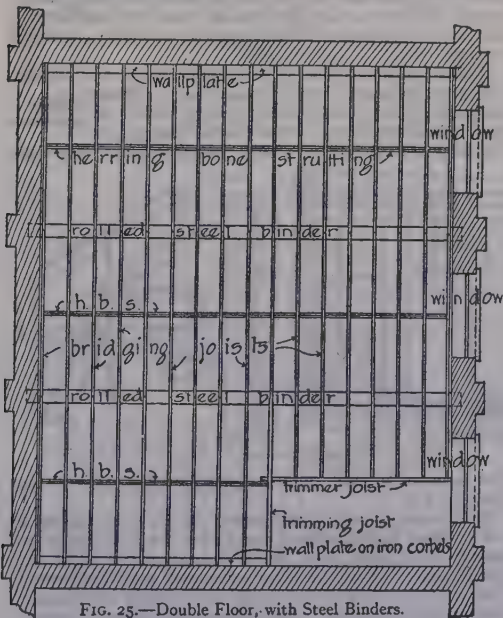 wallplate
window
herring bone strutting
rolled steel binder
h. b. s.
window
bridging joists
rolled steel binder
h. b. s.
window
trimmer joist
trimming joist
wall plate on iron corbels
FIG. 25.—Double Floor, with Steel Binders.